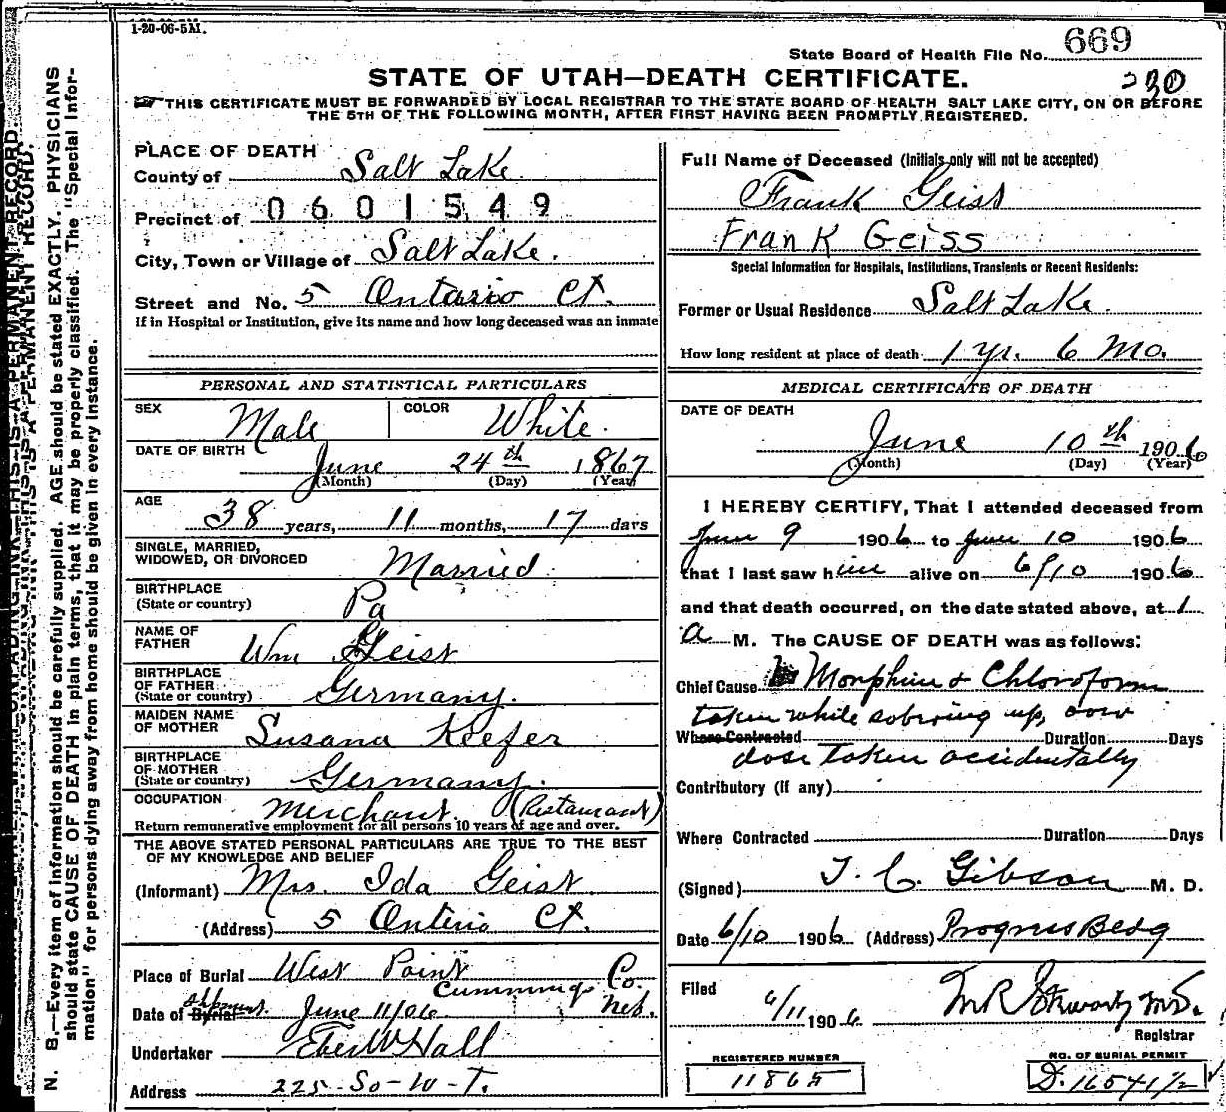 1-20-06-5M.
State Board of Health File No. 669
STATE OF UTAH—DEATH CERTIFICATE.
THIS CERTIFICATE MUST BE FORWARDED BY LOCAL REGISTRAR TO THE STATE BOARD OF HEALTH SALT LAKE CITY, ON OR BEFORE
THE 5TH OF THE FOLLOWING MONTH, AFTER FIRST HAVING BEEN PROMPTLY REGISTERED.
N. B.—Every item of information should be carefully supplied. AGE should be stated EXACTLY. PHYSICIANS
should state CAUSE OF DEATH in plain terms, that it may be properly classified. The "Special Infor-
mation" for persons dying away from home should be given in every instance.
PLACE OF DEATH
County of Salt Lake
Precinct of 0601549
City, Town or Village of Salt Lake.
Street and No. 5 Ontario Ct.
If in Hospital or Institution, give its name and how long deceased was an inmate
PERSONAL AND STATISTICAL PARTICULARS
SEX Male COLOR White.
DATE OF BIRTH June 24th 1867
(Month) (Day) (Year)
AGE 38 years, 11 months, 17 days
SINGLE, MARRIED,
WIDOWED, OR DIVORCED Married
BIRTHPLACE
(State or country) Pa
NAME OF
FATHER Wm Geist
BIRTHPLACE
OF FATHER
(State or country) Germany.
MAIDEN NAME
OF MOTHER Susana Keefer
BIRTHPLACE
OF MOTHER
(State or country) Germany.
OCCUPATION Merchant (Restaurant)
Return remunerative employment for all persons 10 years of age and over.
THE ABOVE STATED PERSONAL PARTICULARS ARE TRUE TO THE BEST
OF MY KNOWLEDGE AND BELIEF
(Informant) Mrs. Ida Geist
(Address) 5 Onterio Ct.
Place of Burial West Point Co.
Cummings
Date of Burial Shipment June 11/06 Neb.
Undertaker Eber W Hall
Address 225-So-W-T.
Full Name of Deceased (Initials only will not be accepted)
Frank Geist
Frank Geiss
Special Information for Hospitals, Institutions, Transients or Recent Residents:
Former or Usual Residence Salt Lake.
How long resident at place of death 1 yr. 6 Mo.
MEDICAL CERTIFICATE OF DEATH
DATE OF DEATH
June 10th 1906
(Month) (Day) (Year)
I HEREBY CERTIFY, That I attended deceased from
June 9 1906 to June 10 1906
that I last saw him alive on 6/10 1906
and that death occurred, on the date stated above, at 1
a M. The CAUSE OF DEATH was as follows:
Chief Cause Morphine & Chloroform
taken while sobering up, over
Where Contracted Duration Days
dose taken accidentally
Contributory (if any)
Where Contracted Duration Days
(Signed) T. C. Gibson M. D.
Date 6/10 1906 (Address) Progress Bldg
Filed
6/11 1906
Registrar
REGISTERED NUMBER
11865
NO. OF BURIAL PERMIT
D. 16541 1/2